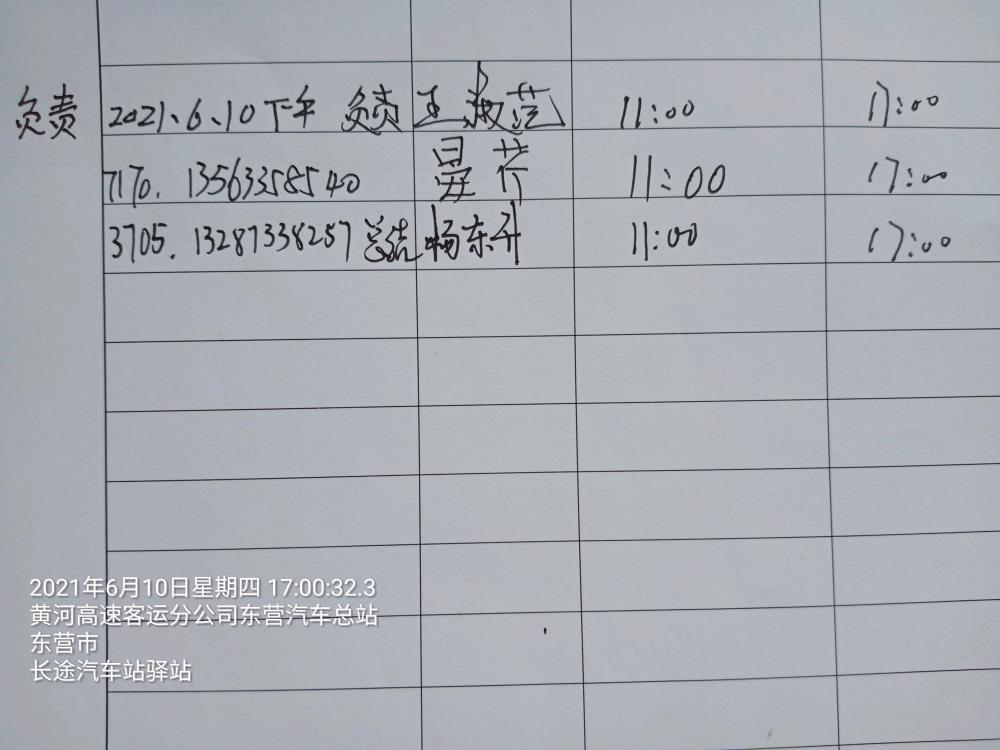 负责 2021、6、10下午 负责 王淑范 11:00 17:00
7170. 13563358540 11:00 17:00
3705. 13287338257 总结 杨东升 11:00 17:00
2021年6月10日星期四 17:00:32.3
黄河高速客运分公司东营汽车总站
东营市
长途汽车站驿站